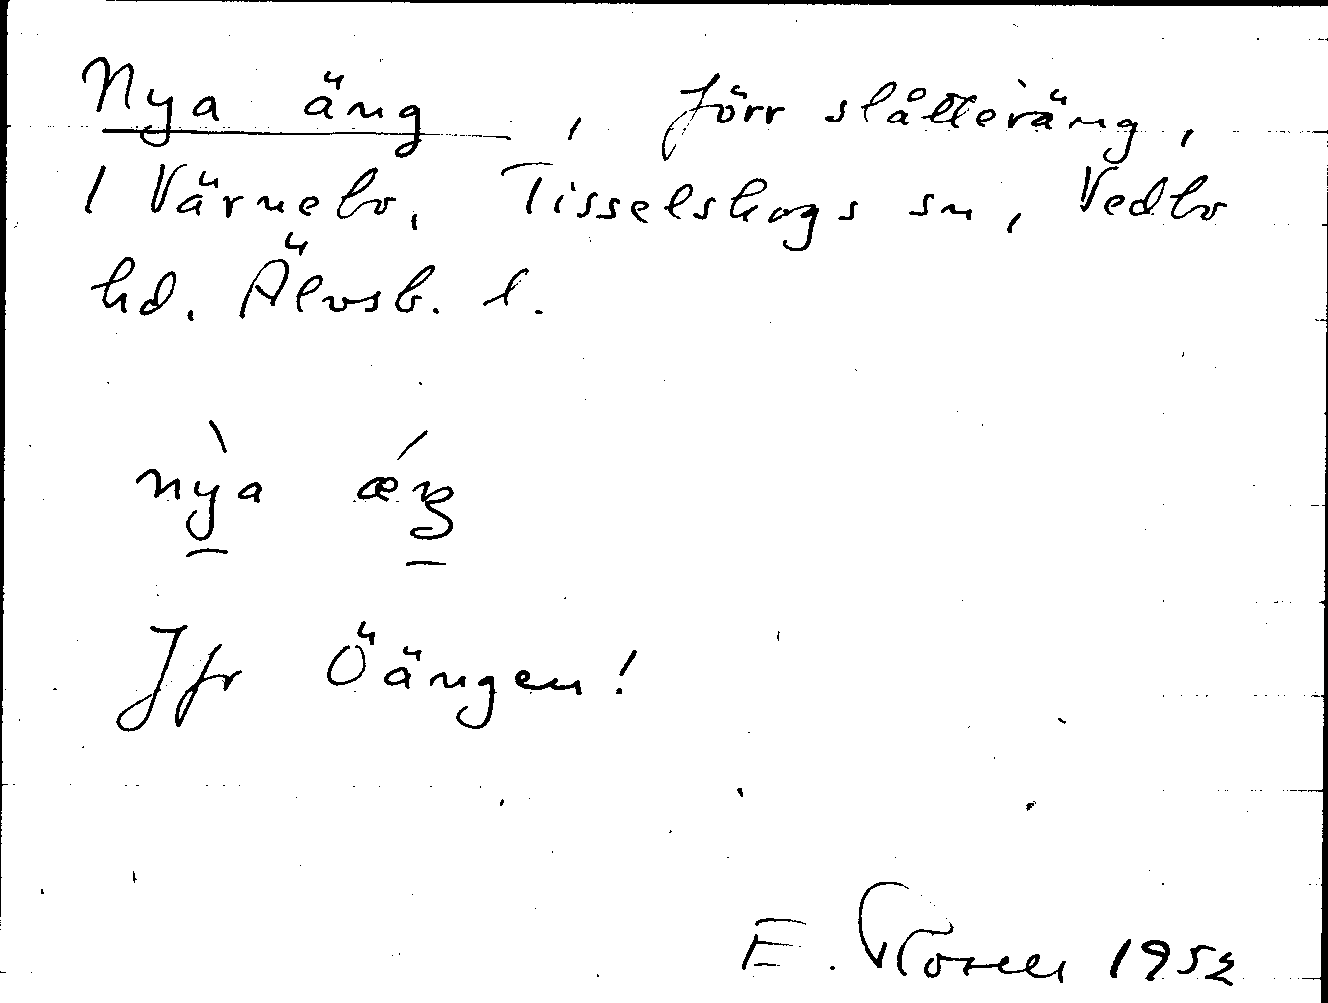 Nya äng, förr slåtteräng,
1 Värnebo, Tisselskogs sn, Vedbo
hd. Älvsb. l.
nỳa ǽŋ
Jfr Öängen!
E. 1952